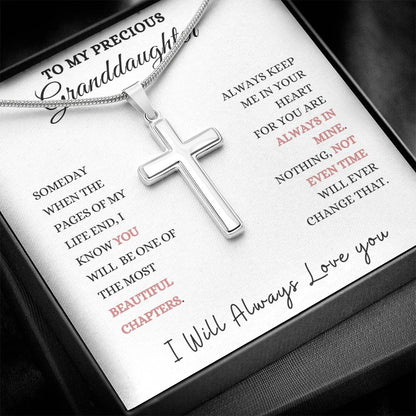 TO MY PRECIOUS
Granddaughter
SOMEDAY
WHEN THE
PAGES OF MY
LIFE END, I
KNOW YOU
WILL BE ONE OF
THE MOST
BEAUTIFUL
CHAPTERS.
ALWAYS KEEP
ME IN YOUR
HEART
FOR YOU ARE
ALWAYS IN
MINE.
NOTHING, NOT
EVEN TIME
WILL EVER
CHANGE THAT.
I Will Always Love you